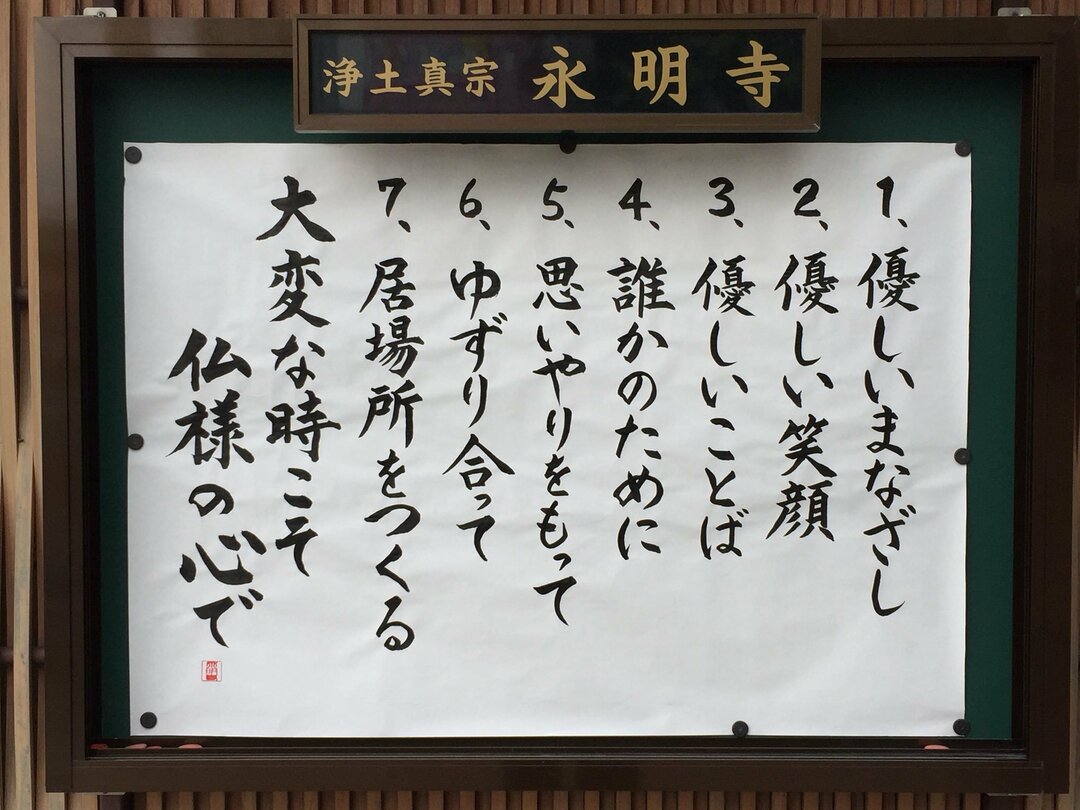 浄土真宗 永明寺
1、優しいまなざし
2、優しい笑顔
3、優しいことば
4、誰かのために
5、思いやりをもって
6、ゆずり合って
7、居場所をつくる
大変な時こそ
仏様の心で